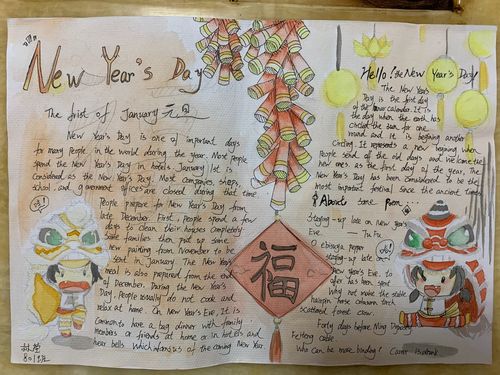 New Year's Day
The frist of January 元旦
New Year's Day is one of important days
for many people in the world during the year. Most people
spend the New Year's Day in hotels. January 1st is
considered as the New Year's Day. Most companies, shops,
school and government offices are closed during that time.
People prepare for New Year's Day from
late December. First, people spend a few
days to clean their houses completely
Some families then put up some
new painting from November to be
sent in January. The New Year
meal is also prepared from the end
of December. During the New Year's
Day, people usually do not cook and
relax at home. On New Year's Eve, It is
Common to have a big dinner with family
members or friends at home or in hotels and
hear bells which informs of the coming New Year
福
Hello! the New Year's Day
The New Year's
Day is the first day
of the lunar calendar. It is
the day when the earth has
circled the sun for one
round and it is begining another
Circling. It represents a new beginning when
People send of the old days and welcome the
new ones. as the first day of the year, The
New Year's Day has been considered to be the
most important festival since the ancient times
About some Poem...
Staying-up late on New Year's
Eve. — Tu Fu
staying-up late on
New Year's Eve. to
after has been sent
Why not make the stable
hairpin horse column torch
scattered forest crow.
Forty days before Ming Dynasty
FeiTeng Cable
Who can be more binding!